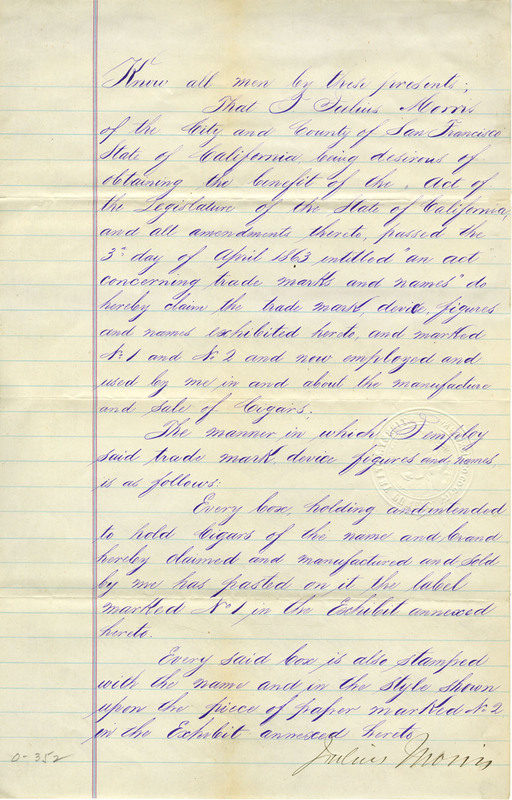 Know all men by these presents;
That I Julius Morris
of the City and County of San Francisco
State of California being desirous of
obtaining the benefit of the Act of
the Legislature of the State of California,
and all amendments thereto, passed the
3d day of April 1863 entitled "an act
concerning trade marks and names" do
hereby claim the trade mark, device, figures
and names exhibited hereto, and marked
No 1 and No 2 and now employed and
used by me in and about the manufacture
and sale of Cigars.
The manner in which I employ
said trade mark device figures and names,
is as follows:
Every box, holding and intended
to hold Cigars of the name and brand
hereby claimed and manufactured and sold
by me has pasted on it the label
marked No 1 in the Exhibit annexed
hereto.
Every said box is also stamped
with the name and in the style shown
upon the piece of paper marked No 2
in the Exhibit annexed hereto
Julius Morris
0-352